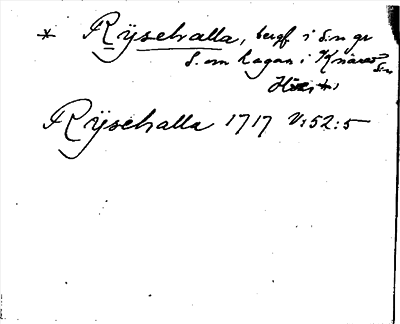 * Rÿsehalla, bergf i s.n gr
S. om Lagan i Knäred
sn
Rÿsehalla 1717 V:52:5